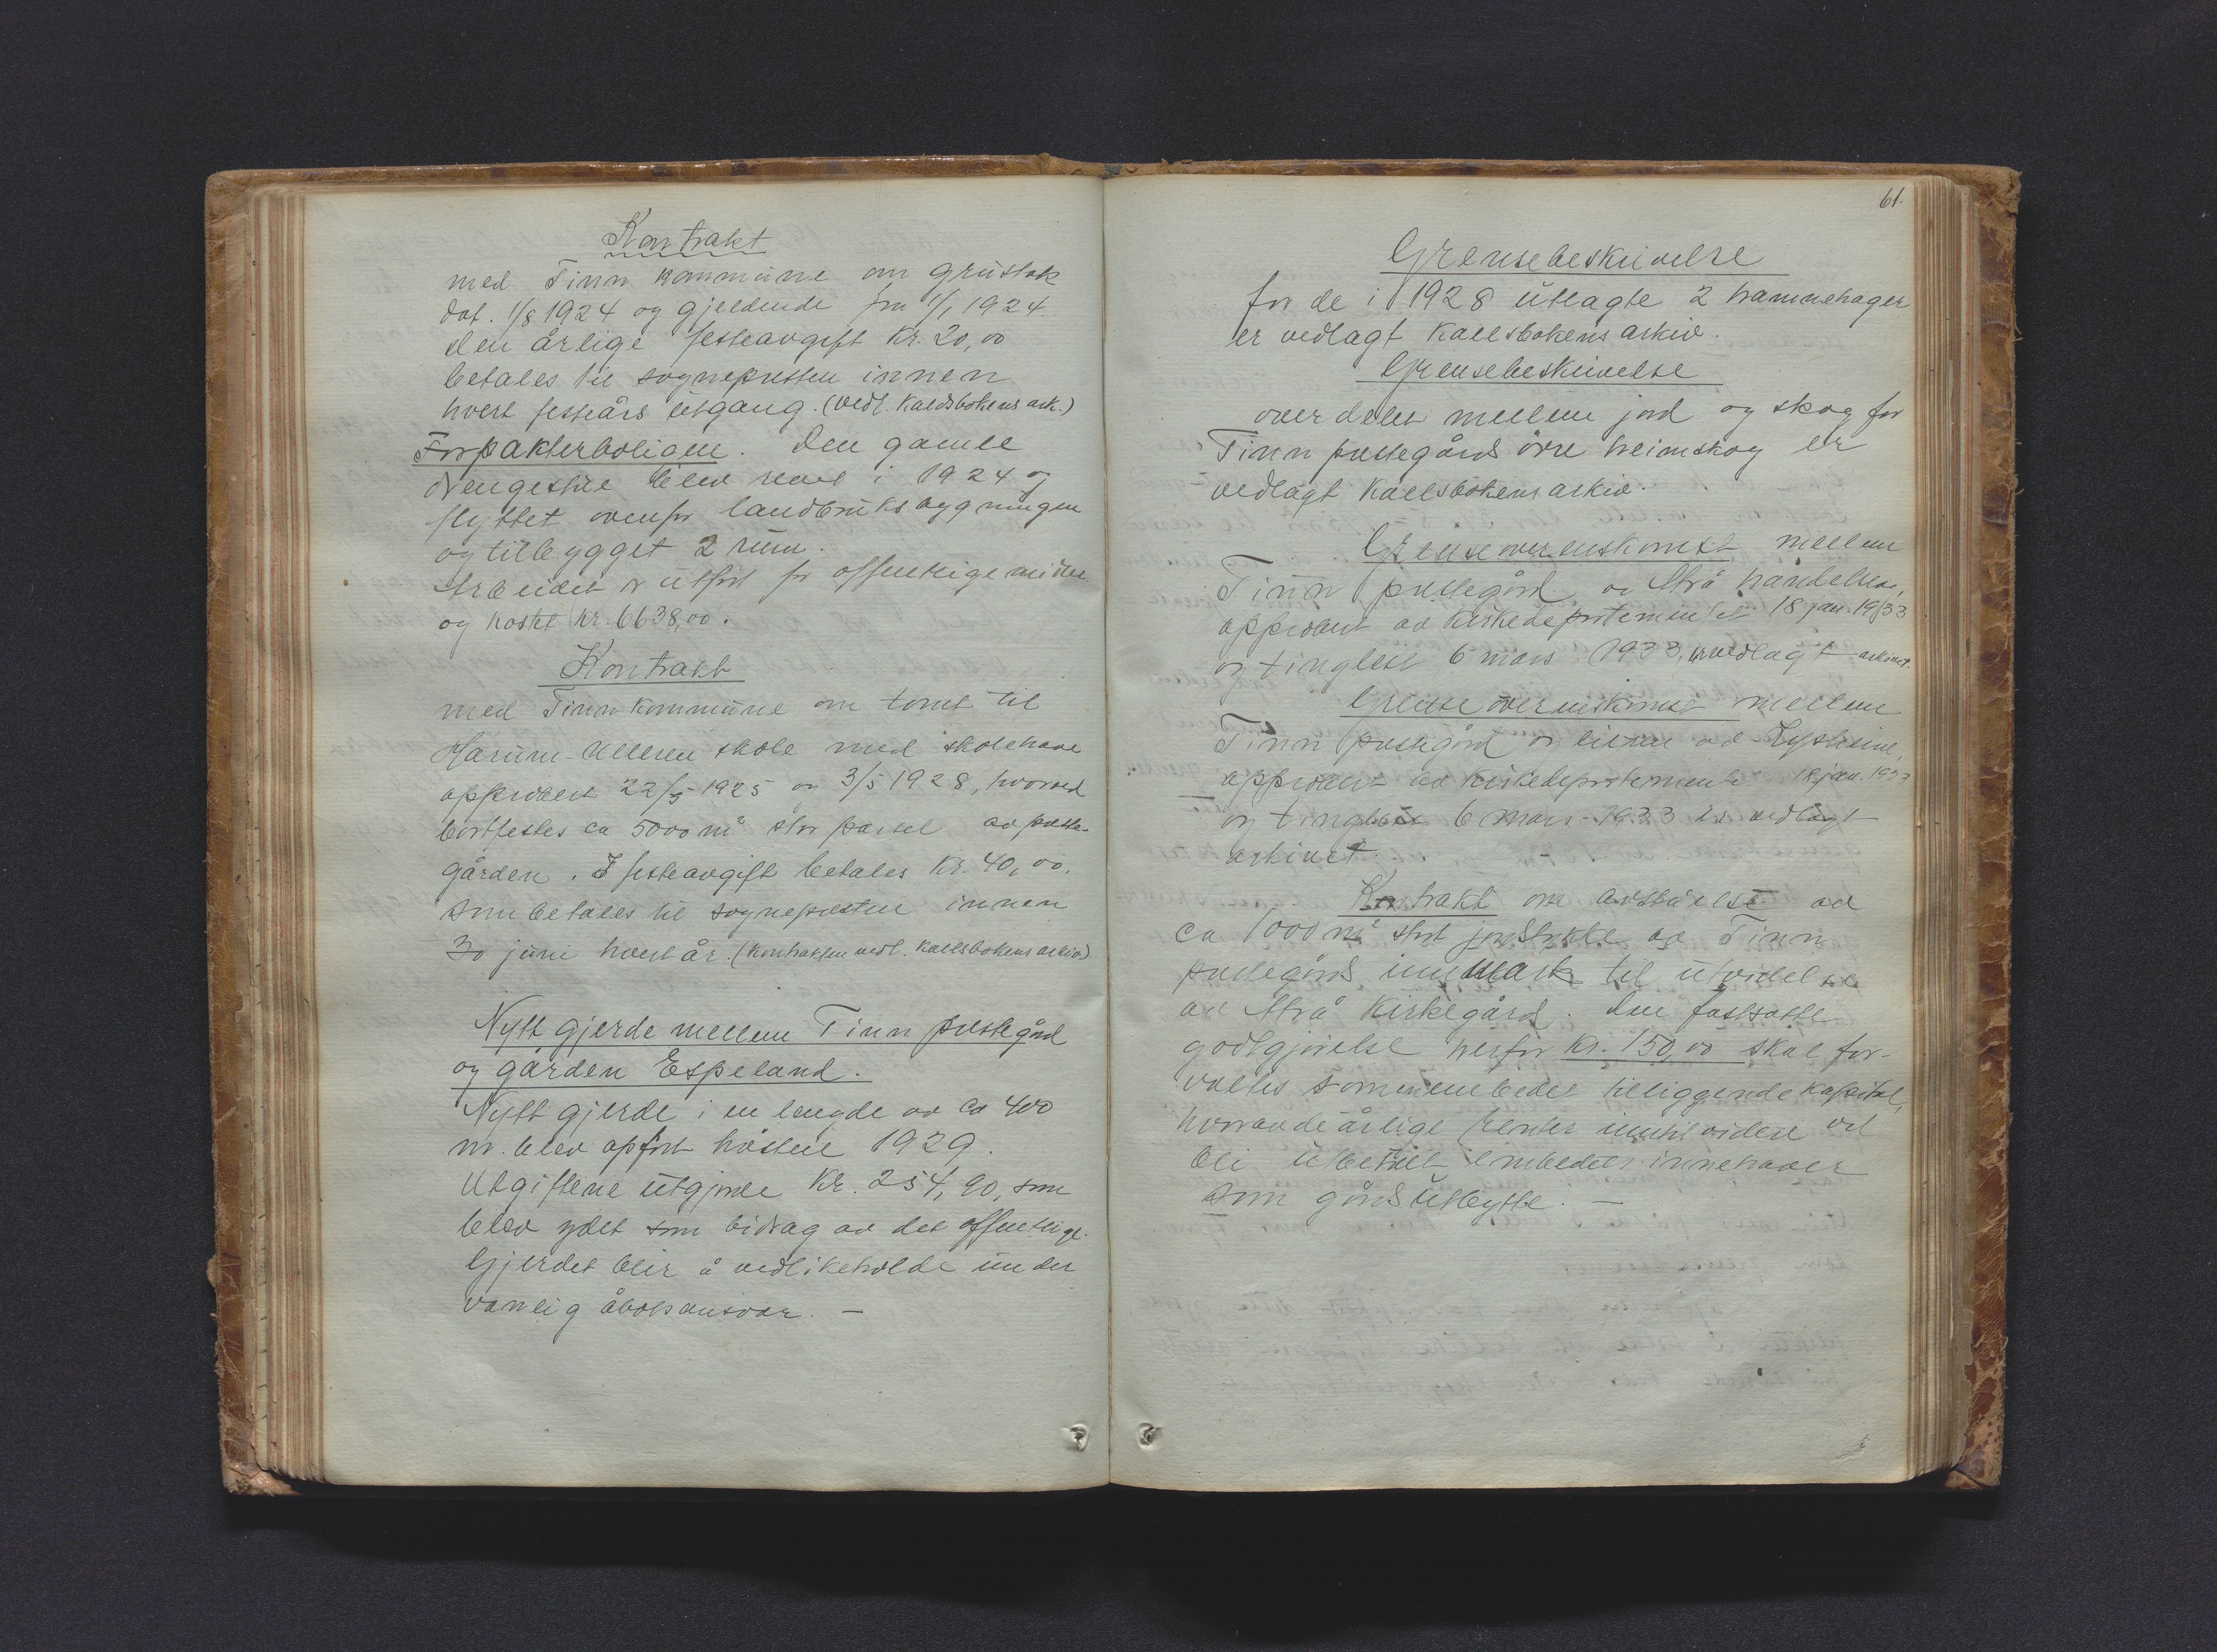 Kontrakt
med Tinn kommune om grustak
dat. 1/8 1924 og gjeldende fra 1/1 1924.
Den årlige festeavgift kr. 20,00
betales til sognepresten innen
hvert festeårs utgang. (vedl. kaldsbokens ark.)
Forpakterboligen. Den gamle
drengestue blev revet i 1924 og
flyttet ovenfor landbruksbygningen
og tilbygget 2 rum.
Arbeidet er utført for offentlige midler
og kostet kr. 6638,00.
Kontrakt
med Tinn kommune om tomt til
Harum-Ulleren skole med skolehave
approbert 22/5 1925 og 3/5 1928, hvorved
bortfestes ca 5000 m² stor parsel av preste-
gården. I festeavgift betales kr. 40,00.
som betales til sognepresten innen
30 juni hvert år. (Kontrakten vedl. kallsbokens arkiv)
Nytt gjerde mellem Tinn prestegård
og gården Espeland.
Nytt gjerde i en lengde av ca 400
m. blev opført høsten 1929.
Utgiftene utgjorde kr. 254,90, som
blev ydet som bidrag av det offentlige.
Gjerdet blir å vedlikeholde under
vanlig åbotsansvar. —
61.
Grensebeskrivelse
for de i 1928 utlagte 2 havnehager
er vedlagt kallsbokens arkiv.
Grensebeskrivelse
over delet mellem jord og skog for
Tinn prestegårds øvre heimskog er
vedlagt kallsbokens arkiv.
Grenseoverenskomst mellem
Tinn prestegård og Atrå handelslag,
approbert av Kirkedepartementet 18 jan. 1933
og tinglest 6 mars 1933, er vedlagt arkivet.
Grenseoverenskomst mellem
Tinn prestegård og eieren av Lysheim,
approbert av Kirkedepartementet 18 jan. 1933
og tinglest 6 mars 1933 er vedlagt
arkivet.
Kontrakt om avståelse av
ca 1000 m² stort jordstykke av Tinn
prestegårds innmark til utvidelse
av Atrå kirkegård. Den fastsatte
godtgjørelse herfor kr. 150,00 skal for-
valtes som en embedet tilliggende kapital,
hvorav de årlige renter inntil videre vil
bli utbetalt embedets innehaver
som gårdsutbytte. —